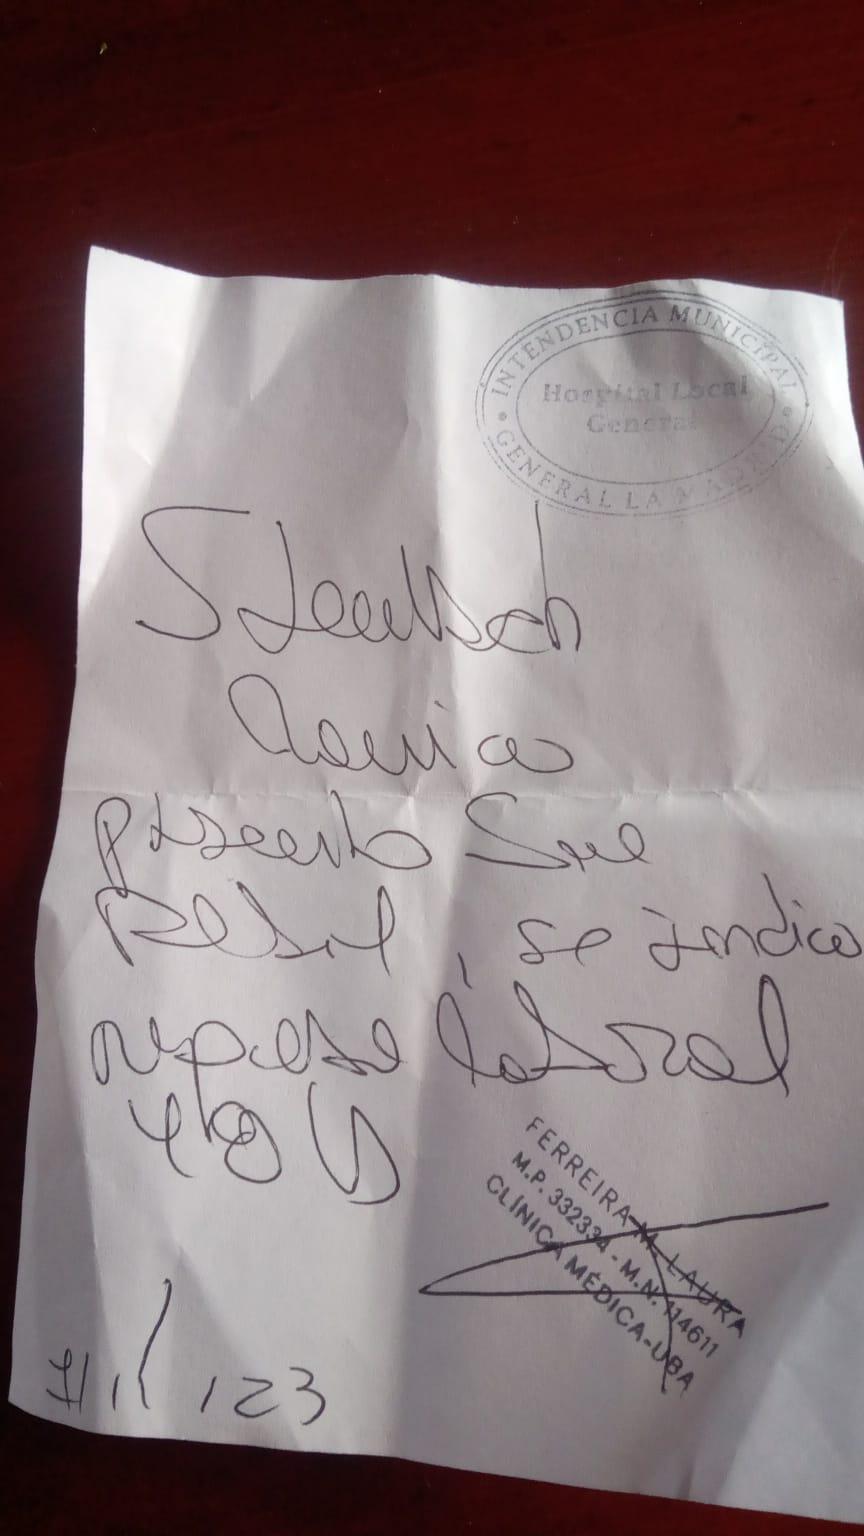 INTENDENCIA MUNICIPAL
Hospital Local
General
GENERAL LA MADRID
presento Sme
Febril, se indica
reposo laboral
48 hs
FERREIRA M. LAURA
M.P. 332334 - M.N. 114611
CLÍNICA MÉDICA-UBA
7/11/23